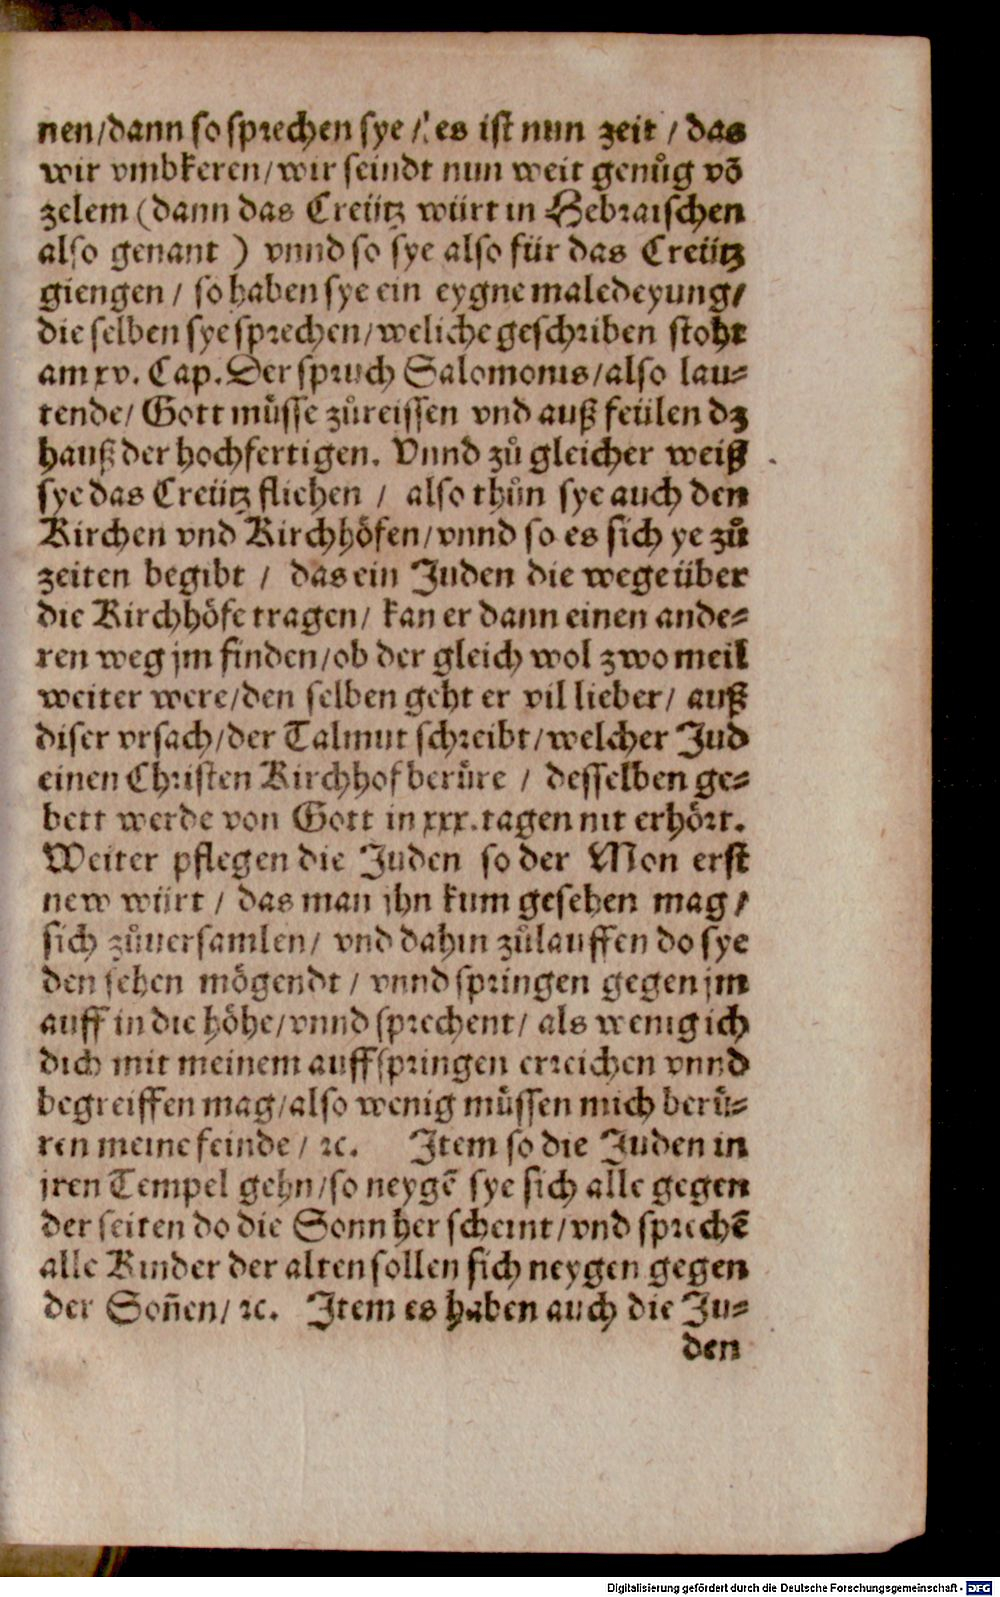 nen/dann so sprechen sye / es ist nun zeit / das
wir vmbkeren/wir seindt nun weit genůg võ
zelem (dann das Creütz würt in Hebraischen
also genant ) vnnd so sye also für das Creütz
giengen / so haben sye ein eygne maledeyung/
die selben sye sprechen/weliche geschriben stoht
am xv. Cap. Der spruch Salomonis/also lau⸗
tende/ Gott můsse zůreissen vnd auß feülen dz
hauß der hochfertigen. Vnnd zů gleicher weiß
sye das Creütz fliehen / also thůn sye auch den
Kirchen vnd Kirchhöfen/vnnd so es sich ye zů
zeiten begibt / das ein Juden die wege über
die Kirchhöfe tragen/ kan er dann einen ande⸗
ren weg jm finden/ob der gleich wol zwo meil
weiter were/den selben geht er vil lieber/ auß
diser vrsach/der Talmut schreibt/welcher Jud
einen Christen Kirchhof berůre / desselben ge⸗
bett werde von Gott in xxx.tagen nit erhört.
Weiter pflegen die Juden so der Mon erst
new würt / das man jhn kum gesehen mag/
sich zůuersamlen/ vnd dahin zůlauffen do sye
den sehen mögendt / vnnd springen gegen jm
auff in die höhe/vnnd sprechent/ als wenig ich
dich mit meinem auffspringen erreichen vnnd
begreiffen mag/also wenig můssen mich berů⸗
ren meine feinde / ꝛc. Item so die Juden in
jren Tempel gehn/so neygẽ sye sich alle gegen
der seiten do die Sonn her scheint/vnd sprechẽ
alle Kinder der alten sollen sich neygen gegen
der Soñen/ ꝛc. Item es haben auch die Ju⸗
den
Digitalisierung gefördert durch die Deutsche Forschungsgemeinschaft - DFG